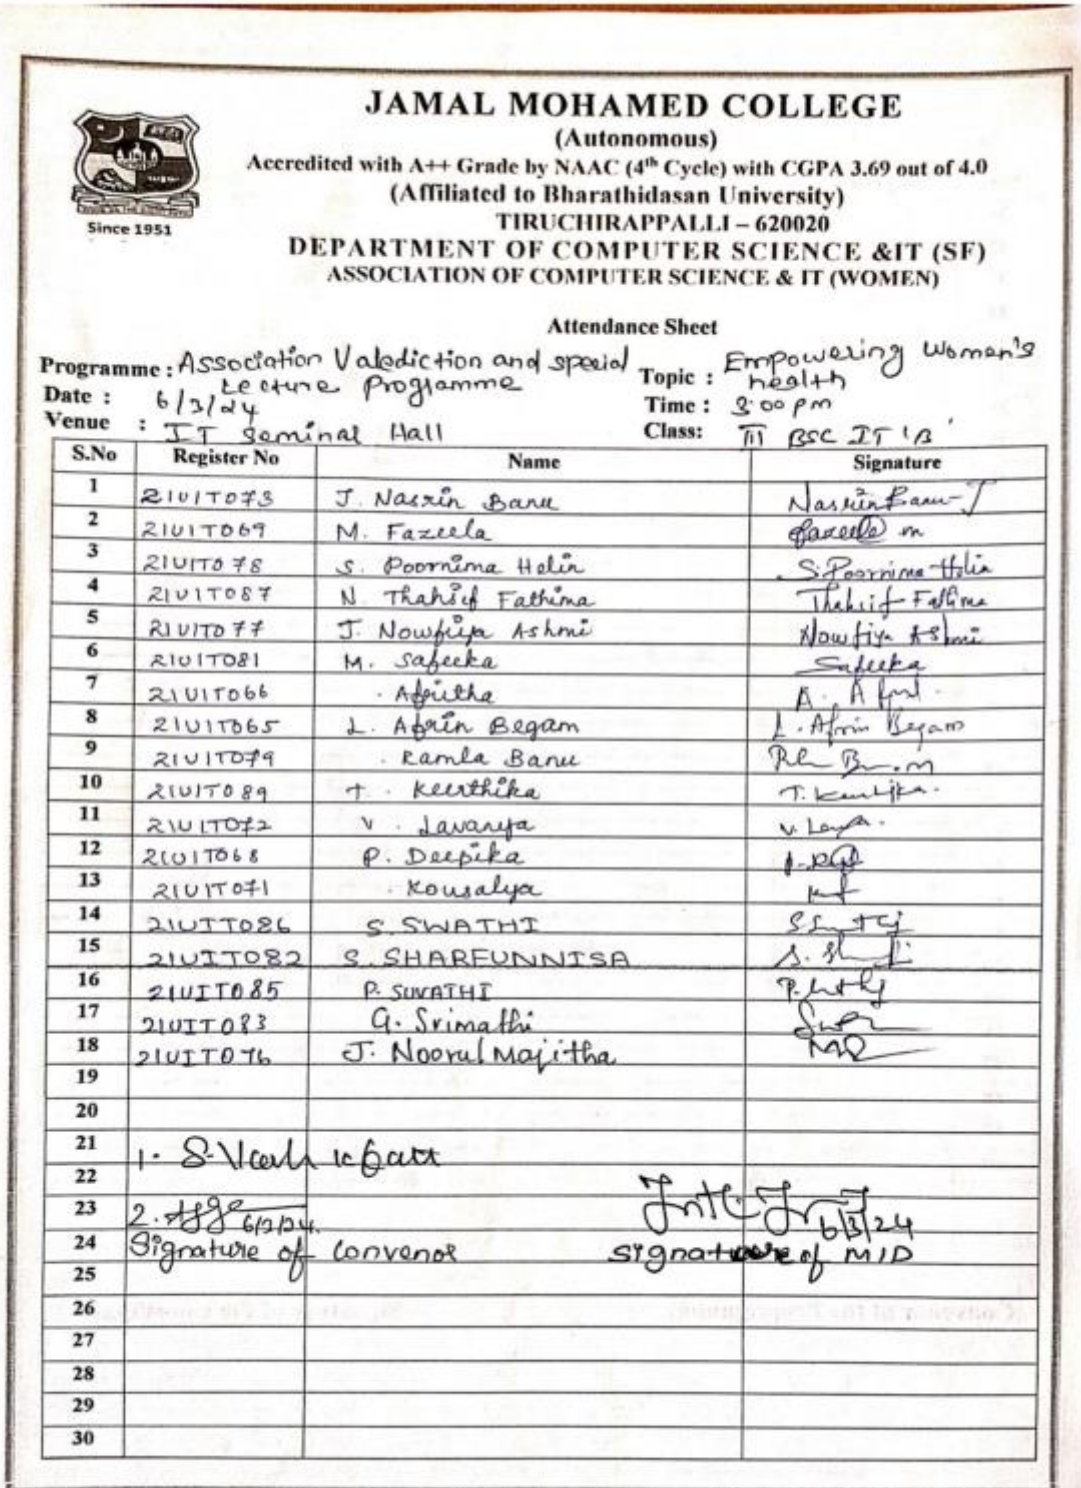 JAMAL MOHAMED COLLEGE
(Autonomous)
Accredited with A++ Grade by NAAC (4th Cycle) with CGPA 3.69 out of 4.0
(Affiliated to Bharathidasan University)
TIRUCHIRAPPALLI – 620020
DEPARTMENT OF COMPUTER SCIENCE &IT (SF)
ASSOCIATION OF COMPUTER SCIENCE & IT (WOMEN)
Since 1951
Attendance Sheet
Programme : Association Valediction and special Lecture Programme Topic : Empowering Women's health
Date : 6/3/24 Time : 3:00 pm
Venue : IT Seminar Hall Class: III BSC IT 'B'
S.No Register No Name Signature
1 21UIT073 J. Nasrin Banu Nasrin Banu J
2 21UIT069 M. Fazeela Fazeela m
3 21UIT078 S. Poornima Helin S. Poornima Helin
4 21UIT087 N. Thahsif Fathima Thahsif Fathima
5 21UIT077 J. Nowfiya Ashmi Nowfiya Ashmi
6 21UIT081 M. Safeeka Safeeka
7 21UIT066 . Afritha A.
8 21UIT065 L. Afrin Begam L. Afrin Begam
9 21UIT079 . Ramla Banu
10 21UIT089 T. Keerthika T. Keerthika.
11 21UIT072 V. Lavanya V.
12 21UIT068 P. Deepika
13 21UIT071 . Kousalya
14 21UIT086 S. SWATHI
15 21UIT082 S. SHARFUNNISA
16 21UIT085 P. SUVATHI
17 21UIT083 G. Srimathi
18 21UIT076 J. Noorul Majitha
19
20
21 1.
22
23 2. 6/3/24. 6/3/24
24 Signature of convenor Signature of MID
25
26
27
28
29
30